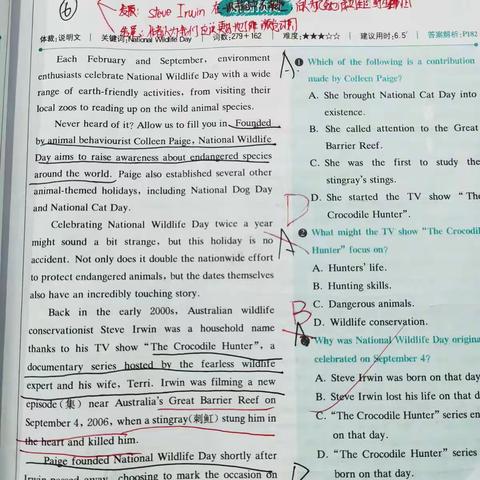 ⑥
发展: Steve Irwin
体裁:说明文 关键词:National Wildlife Day 词数:279+162 难度:★★★☆☆ 建议用时:6.5' 答案解析:P182
Each February and September, environment
enthusiasts celebrate National Wildlife Day with a wide
range of earth-friendly activities, from visiting their
local zoos to reading up on the wild animal species.
Never heard of it? Allow us to fill you in. Founded
by animal behaviourist Colleen Paige, National Wildlife
Day aims to raise awareness about endangered species
around the world. Paige also established several other
animal-themed holidays, including National Dog Day
and National Cat Day.
Celebrating National Wildlife Day twice a year
might sound a bit strange, but this holiday is no
accident. Not only does it double the nationwide effort
to protect endangered animals, but the dates themselves
also have an incredibly touching story.
Back in the early 2000s, Australian wildlife
conservationist Steve Irwin was a household name
thanks to his TV show "The Crocodile Hunter", a
documentary series hosted by the fearless wildlife
expert and his wife, Terri. Irwin was filming a new
episode(集) near Australia's Great Barrier Reef on
September 4, 2006, when a stingray(刺魟) stung him in
the heart and killed him.
Paige founded National Wildlife Day shortly after
Irwin passed away, choosing to mark the occasion on
A.
❶ Which of the following is a contribution
made by Colleen Paige?
A. She brought National Cat Day into
existence.
B. She called attention to the Great
Barrier Reef.
C. She was the first to study the
stingray's stings.
D. She started the TV show "The
Crocodile Hunter".
D
A
❷ What might the TV show "The Crocodil
Hunter" focus on?
A. Hunters' life.
B. Hunting skills.
C. Dangerous animals.
D. Wildlife conservation.
B
A
Why was National Wildlife Day origina
celebrated on September 4?
A. Steve Irwin was born on that day
B. Steve Irwin lost his life on that d
C. "The Crocodile Hunter" series en
on that day.
D. "The Crocodile Hunter" series
born on that day.
D